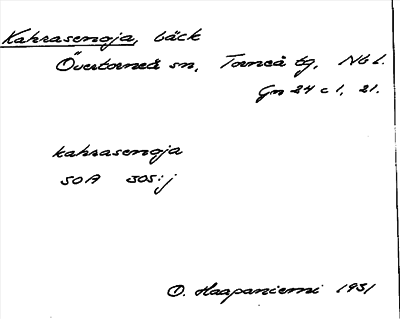 Kahrasenoja, bäck
Övertorneå sn, Torneå tg, Nb l.
Gn 24 c 1, 21.
kahrasenoja
SOA 505:j
O. Haapaniemi 1931